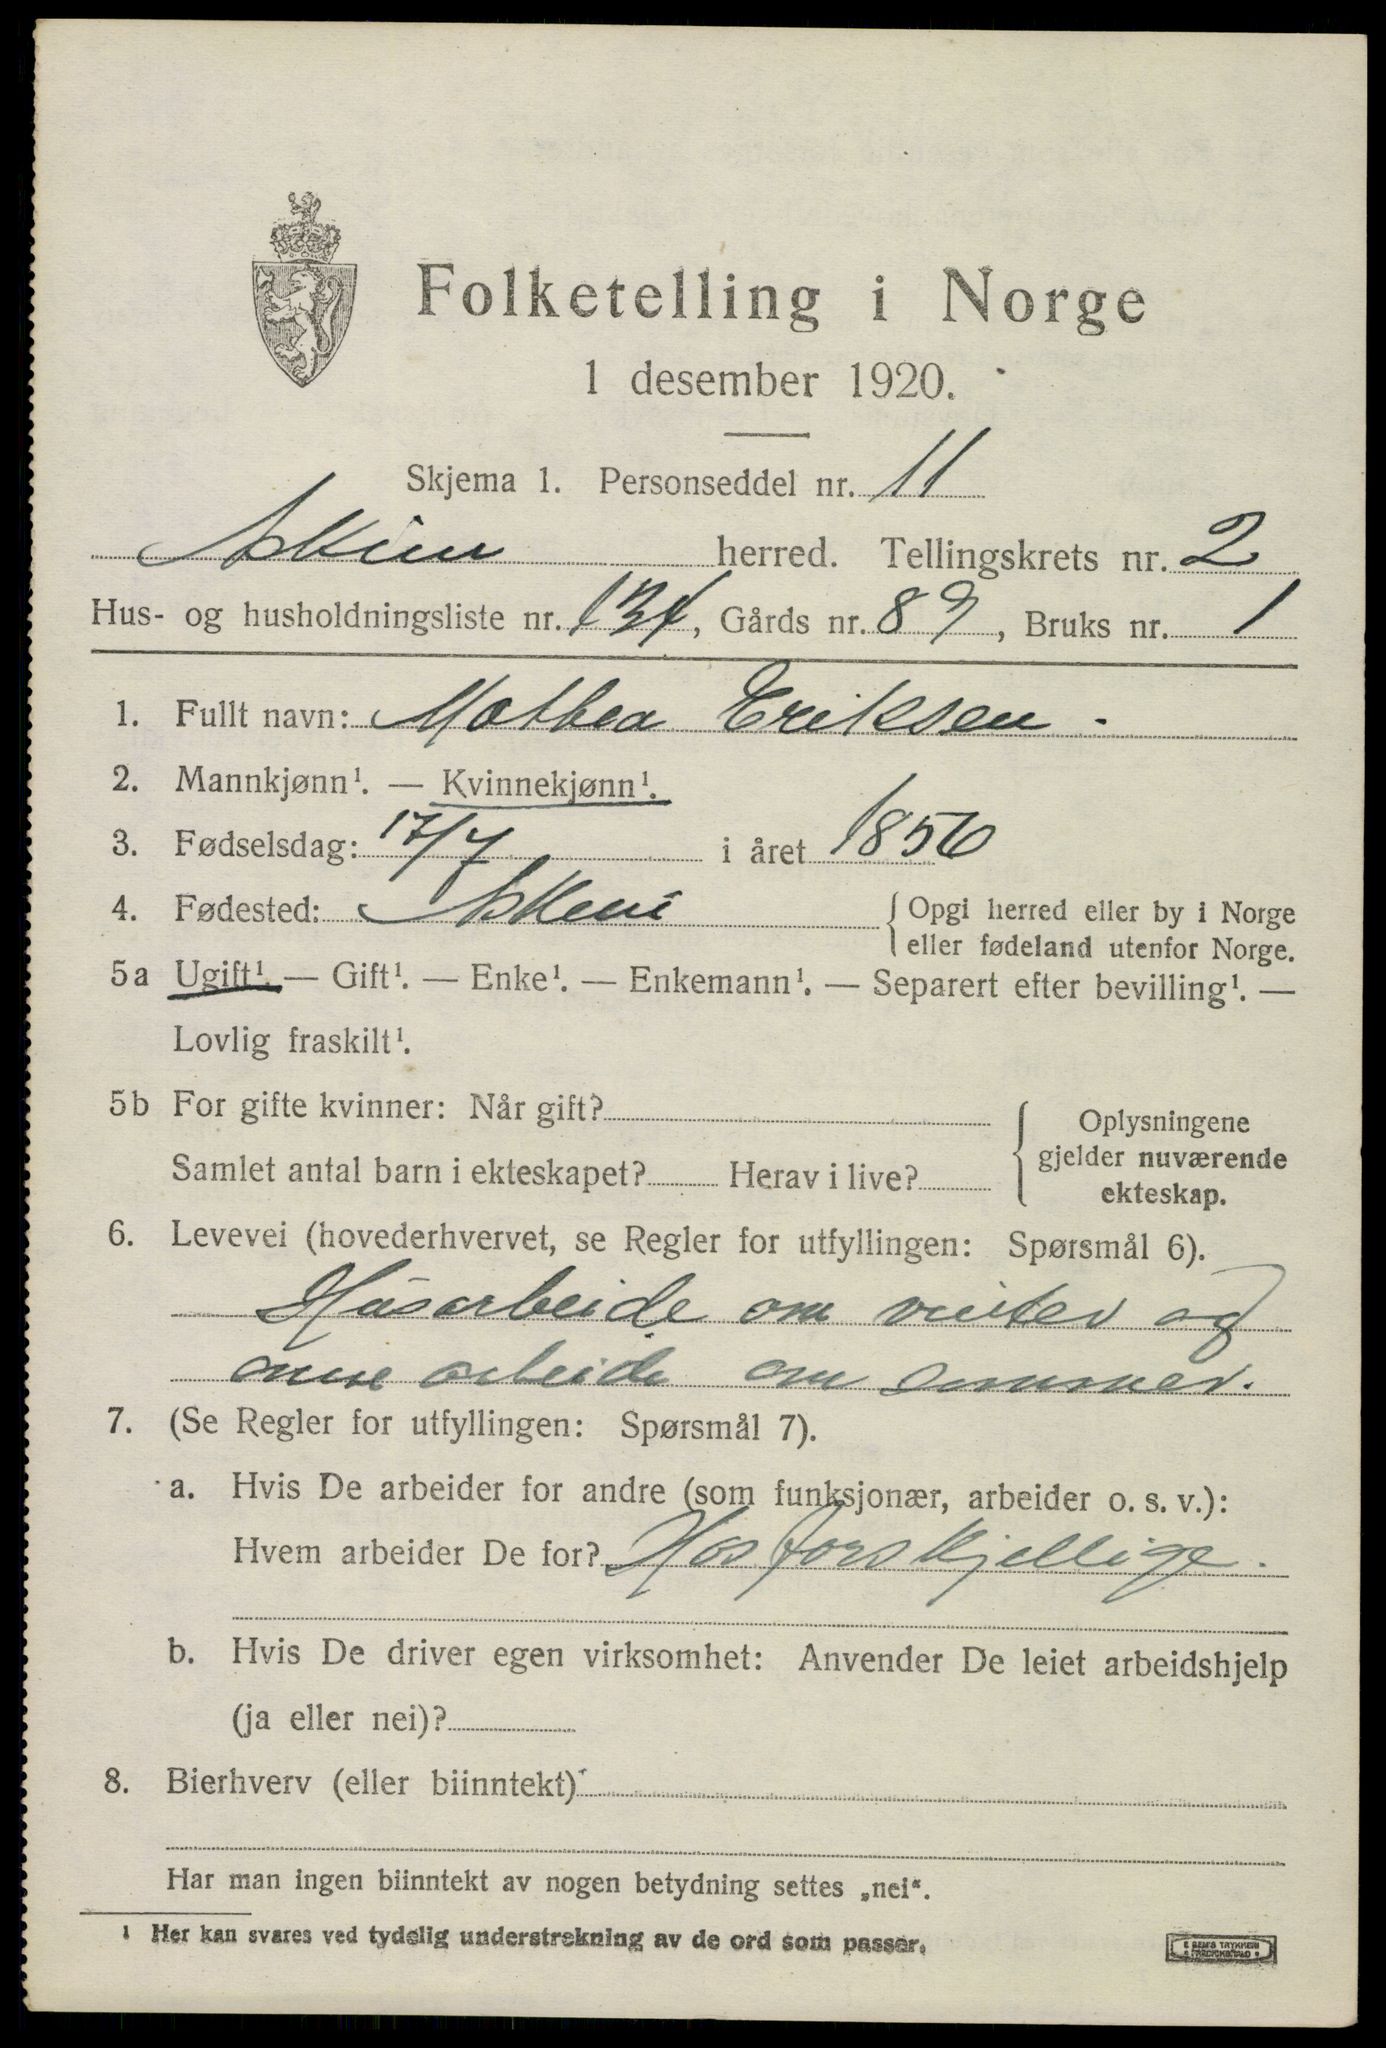 Folketelling i Norge
1 desember 1920.
Skjema 1. Personseddel nr. 11
Askim herred. Tellingskrets nr. 2
Hus- og husholdningsliste nr. 134, Gårds nr. 89, Bruks nr. 1
1. Fullt navn: Mathea Eriksen.
2. Mannkjønn¹. — Kvinnekjønn¹.
3. Fødselsdag: 17/7 i året 1856
4. Fødested: Askim { Opgi herred eller by i Norge
eller fødeland utenfor Norge.
5a Ugift¹. — Gift¹. — Enke¹. — Enkemann¹. — Separert efter bevilling¹. —
Lovlig fraskilt¹.
5b For gifte kvinner: Når gift?
Samlet antal barn i ekteskapet? Herav i live?
Oplysningene
gjelder nuværende
ekteskap.
6. Levevei (hovederhvervet, se Regler for utfyllingen: Spørsmål 6).
Husarbeide om vinter og
onne arbeide om sommer.
7. (Se Regler for utfyllingen: Spørsmål 7).
a. Hvis De arbeider for andre (som funksjonær, arbeider o. s. v.):
Hvem arbeider De for? Hos forskjellige.
b. Hvis De driver egen virksomhet: Anvender De leiet arbeidshjelp
(ja eller nei)?
8. Bierhverv (eller biinntekt)
Har man ingen biinntekt av nogen betydning settes „nei“.
¹ Her kan svares ved tydelig understrekning av de ord som passer.